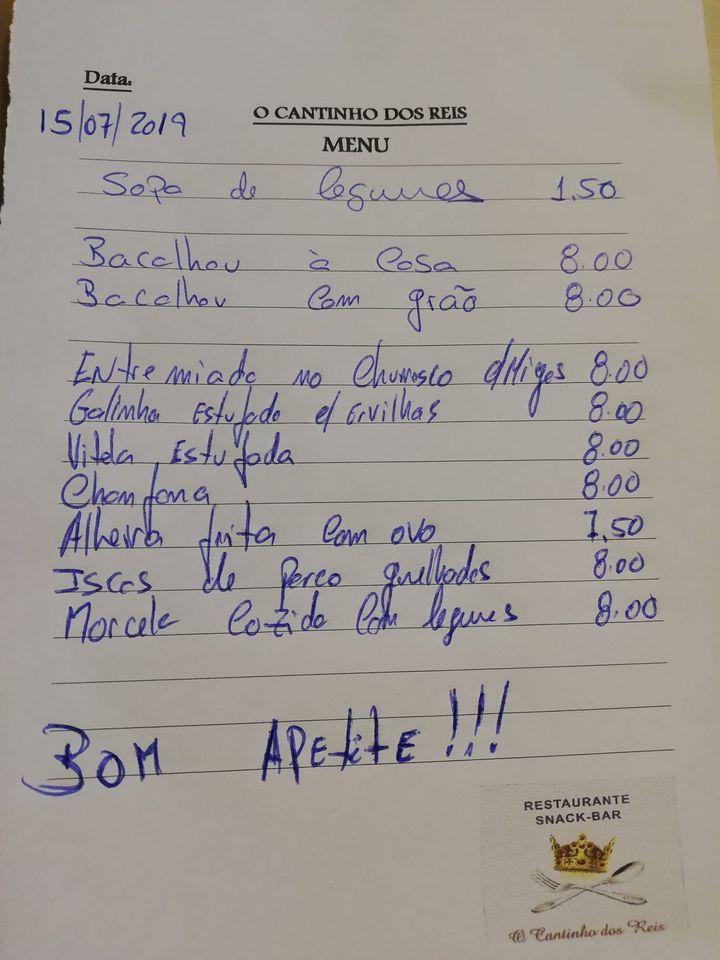 Data.
15/07/2019
O CANTINHO DOS REIS
MENU
Sopa de legumes 1,50
Bacalhau à Casa 8.00
Bacalhau com grão 8.00
Entremiada no Churrasco c/Migas 8.00
Galinha Estufada c/ Ervilhas 8.00
Vitela Estufada 8.00
Chanfana 8.00
Alheira frita com ovo 7,50
Iscas de porco grelhadas 8.00
Morcela Cozida Com legumes 8.00
BOM APETITE!!!
RESTAURANTE
SNACK-BAR
O Cantinho dos Reis